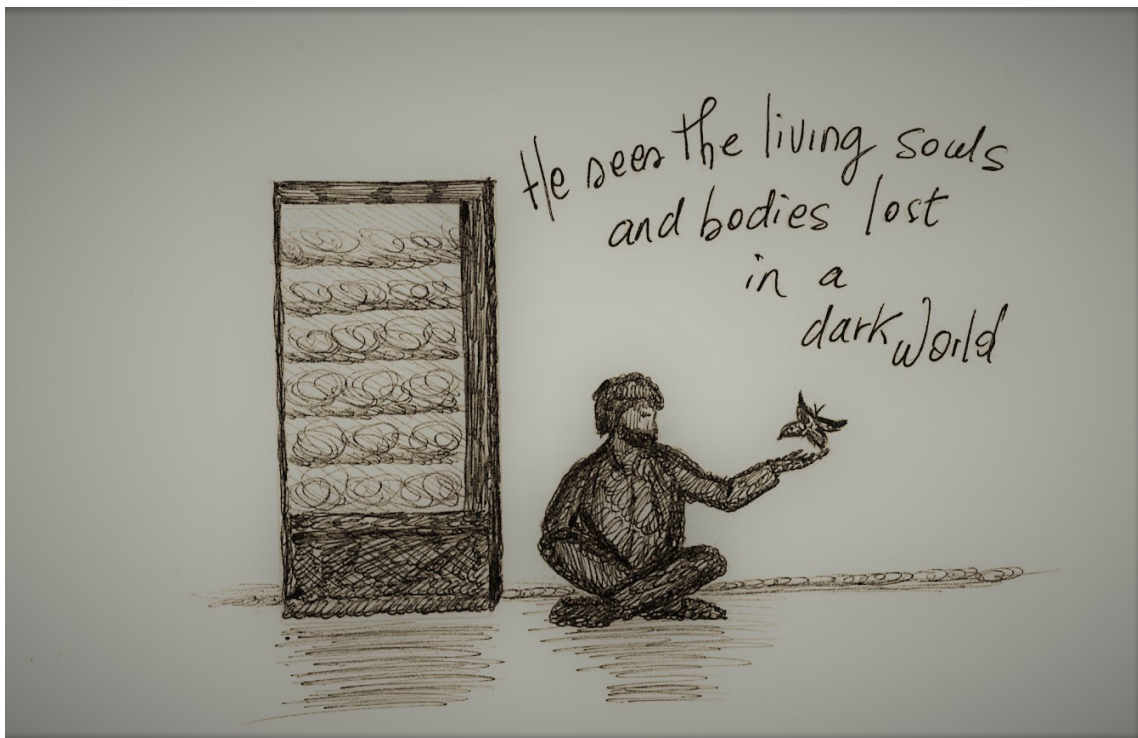 He sees the living souls
and bodies lost
in a
dark world